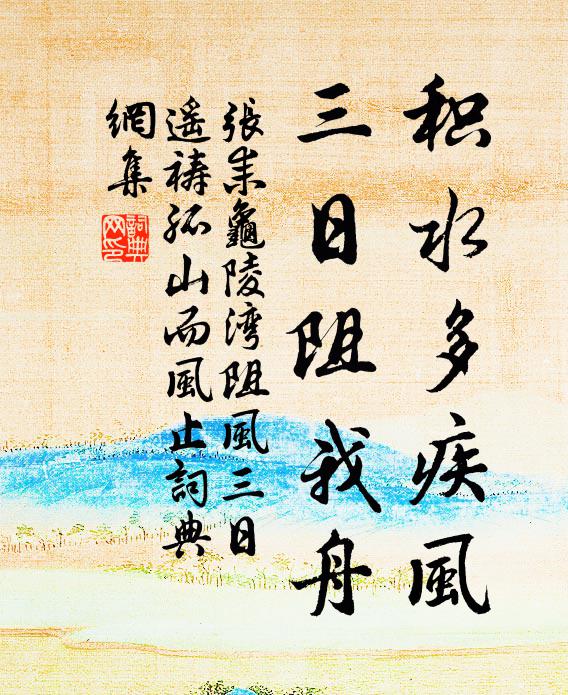 积水多疾風
三日阻我舟
張耒龜陵湾阻風三日
遥祷孤山而風止詞典
網集
詞典
网印